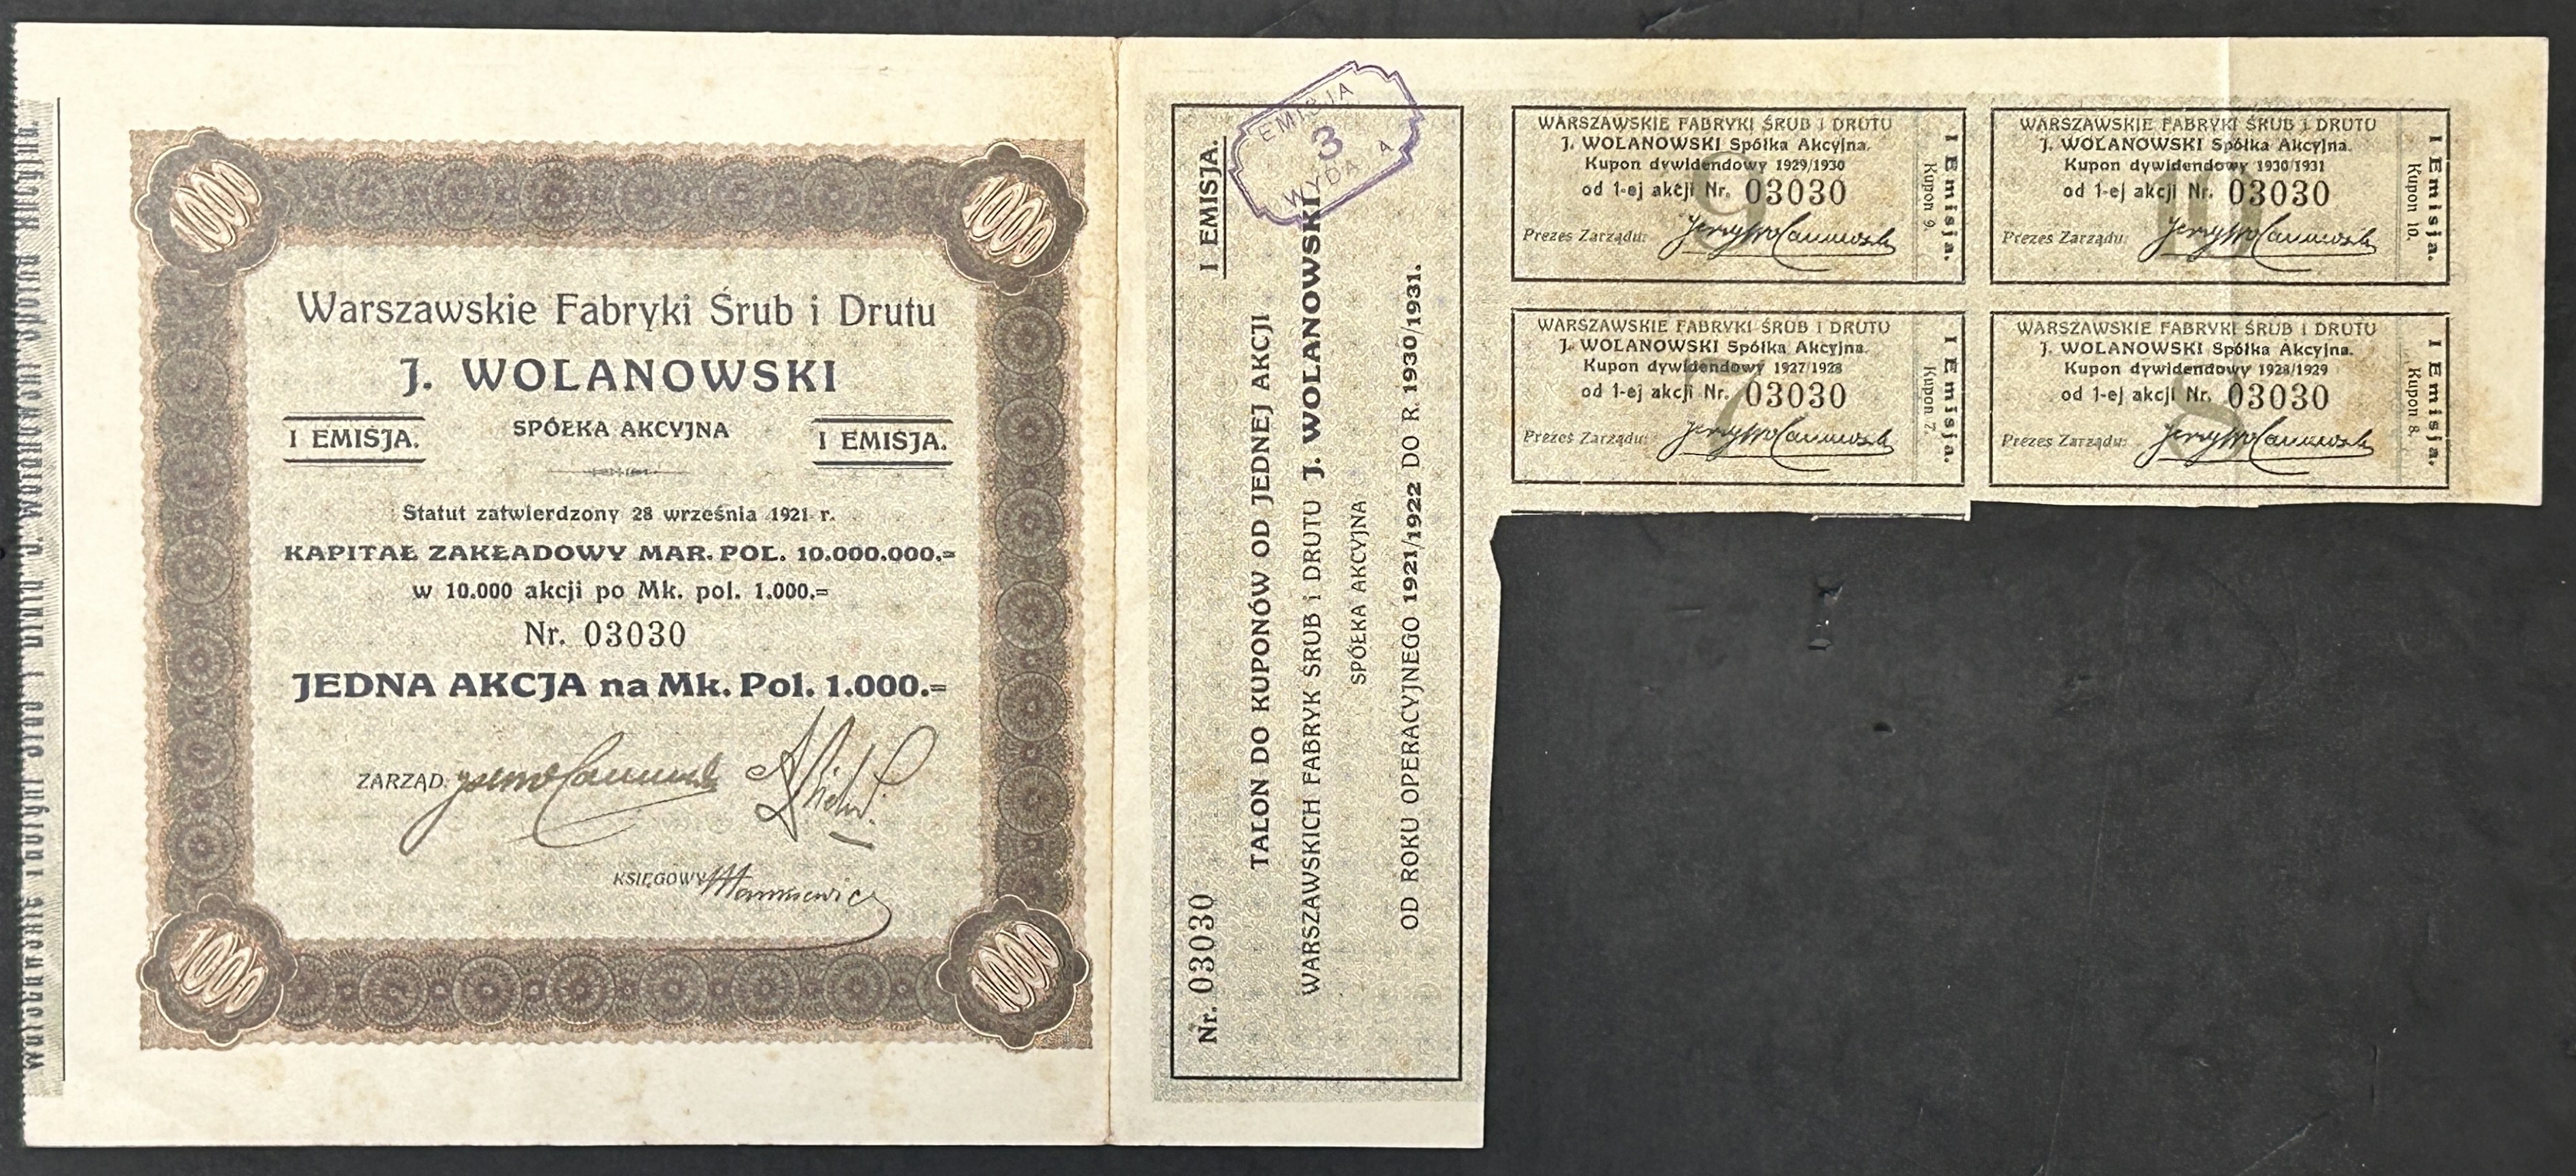 1000
1000
Warszawskie Fabryki Śrub i Drutu
J. WOLANOWSKI
SPÓŁKA AKCYJNA
I EMISJA.
I EMISJA.
Statut zatwierdzony 28 września 1921 r.
KAPITAŁ ZAKŁADOWY MAR. POL. 10.000.000.=
w 10.000 akcji po Mk. pol. 1.000.=
Nr. 03030
JEDNA AKCJA na Mk. Pol. 1.000.=
ZARZĄD
KSIĘGOWY
1000
1000
I EMISJA.
Nr. 03030
TALON DO KUPONÓW OD JEDNEJ AKCJI
WARSZAWSKICH FABRYK ŚRUB i DRUTU J. WOLANOWSKI
SPÓŁKA AKCYJNA
OD ROKU OPERACYJNEGO 1921/1922 DO R. 1930/1931.
EMISJA
3
WYDA A
WARSZAWSKIE FABRYKI ŚRUB i DRUTU
J. WOLANOWSKI Spółka Akcyjna.
Kupon dywidendowy 1929/1930
od 1-ej akcji Nr. 03030
Prezes Zarządu: Jerzy Wolanowski
I Emisja.
Kupon 9.
9
WARSZAWSKIE FABRYKI ŚRUB i DRUTU
J. WOLANOWSKI Spółka Akcyjna.
Kupon dywidendowy 1930/1931
od 1-ej akcji Nr. 03030
Prezes Zarządu: Jerzy Wolanowski
I Emisja.
Kupon 10.
10
WARSZAWSKIE FABRYKI ŚRUB i DRUTU
J. WOLANOWSKI Spółka Akcyjna.
Kupon dywidendowy 1927/1928
od 1-ej akcji Nr. 03030
Prezes Zarządu: Jerzy Wolanowski
I Emisja.
Kupon 7.
7
WARSZAWSKIE FABRYKI ŚRUB i DRUTU
J. WOLANOWSKI Spółka Akcyjna.
Kupon dywidendowy 1928/1929
od 1-ej akcji Nr. 03030
Prezes Zarządu: Jerzy Wolanowski
I Emisja.
Kupon 8.
8